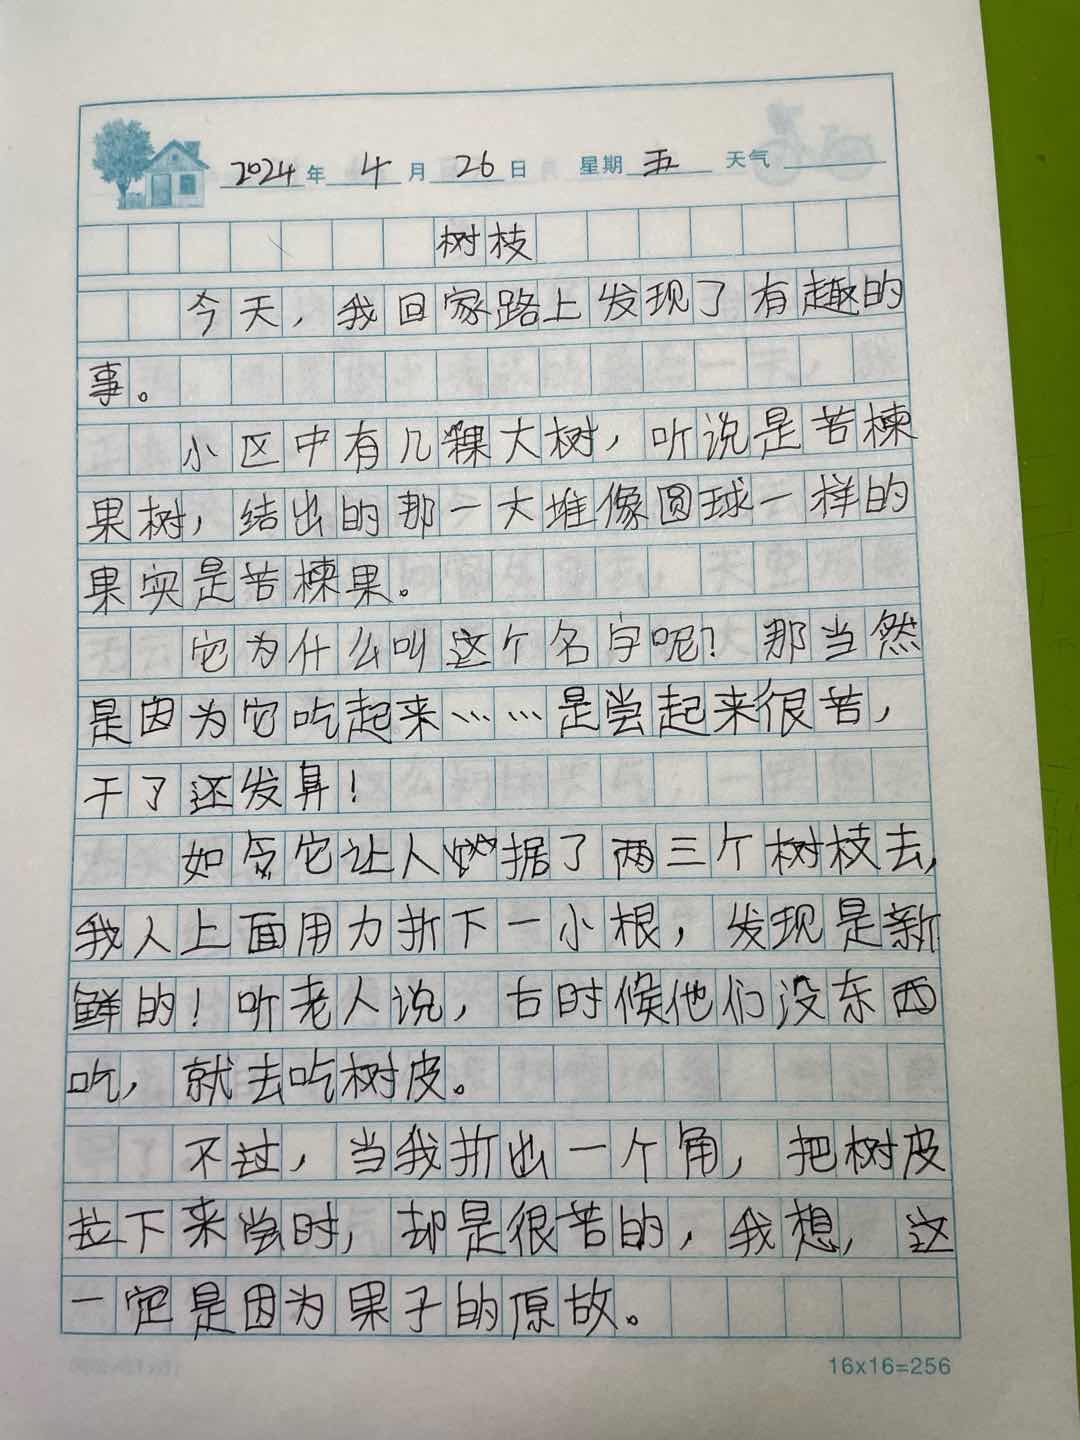 2024年4月26日 星期五 天气
树枝
今天,我回家路上发现了有趣的
事。
小区中有几棵大树,听说是苦楝
果树,结出的那一大堆像圆球一样的
果实是苦楝果。
它为什么叫这个名字呢?那当然
是因为它吃起来……是尝起来很苦,
干了还发臭!
如今它让人据了两三个树枝去,
我人上面用力折下一小根,发现是新
鲜的!听老人说,古时候他们没东西
吃,就去吃树皮。
不过,当我折出一个角,把树皮
拉下来尝时,却是很苦的,我想,这
一定是因为果子的原故。
16x16=256